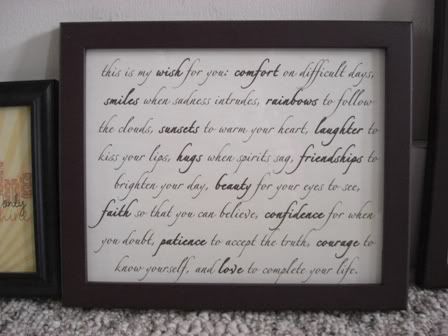 this is my wish for you: comfort on difficult days,
smiles when sadness intrudes, rainbows to follow
the clouds, sunsets to warm your heart, laughter to
kiss your lips, hugs when spirits sag, friendships to
brighten your day, beauty for your eyes to see,
faith so that you can believe, confidence for when
you doubt, patience to accept the truth, courage to
know yourself, and love to complete your life.